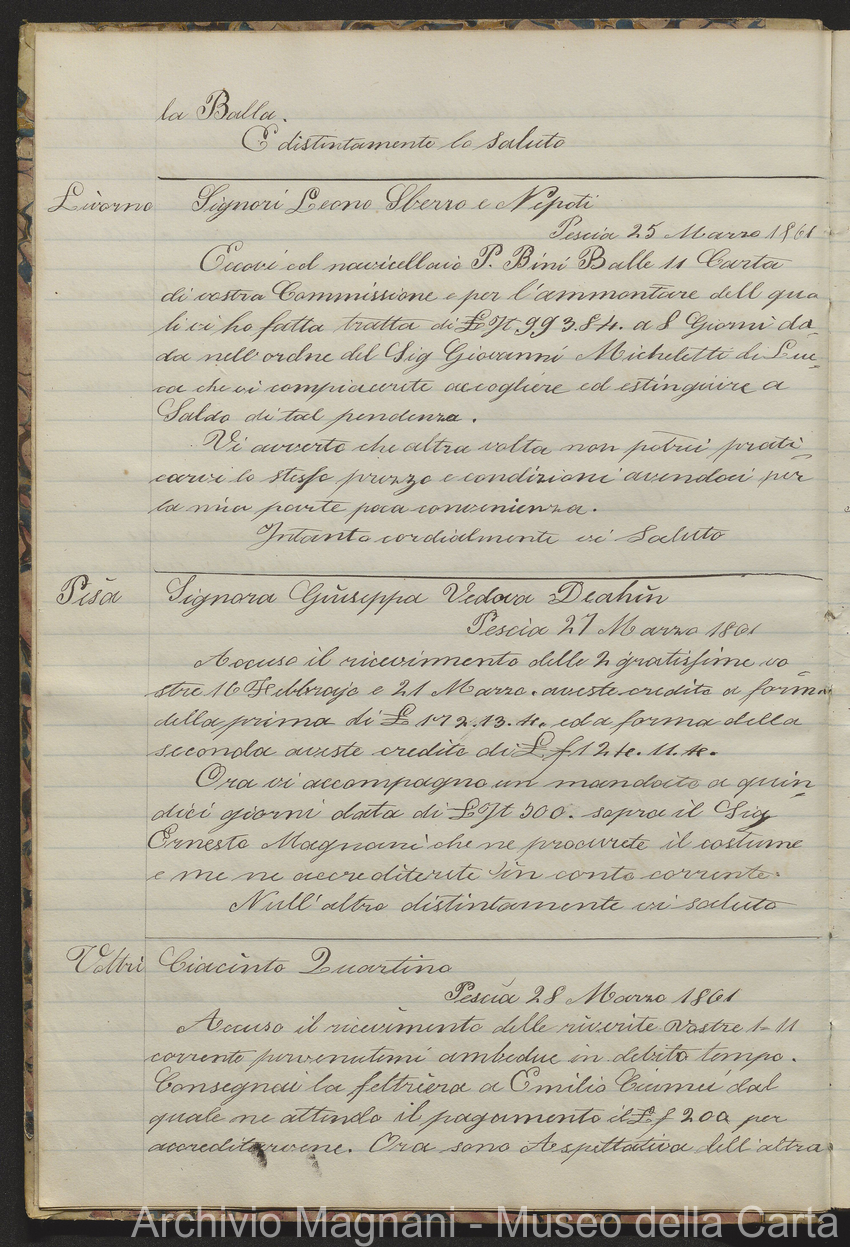 la Balla.
E distintamente lo saluto
Livorno Signori Leone Sberro e Nipoti
Pescia 25 Marzo 1861
Eccovi col navicellaio P. Bini Balle 11 Carta
di vostra Commissione e per l'ammontare dell qua
li vi ho fatta tratta di £It 993.84. a 8 Giorni da-
da nell'ordne del Sig Giovanni Micheletti di Luc-
ca che vi compiacerete accogliere ed estinguire a
Saldo di tal pendenza.
Vi avverto che altra volta non potrei prati-
carvi lo stesso prezzo e condizioni avendoci per
la mia parte poca convenienza.
Intanto cordialmente vi saluto
Pisa Signora Giuseppa Vedova
Pescia 27 Marzo 1861
Accuso il ricevimento delle 2 gratissime vo-
stre 16 Febbrajo e 21 Marzo. aveste credito a forma
della prima di £ 172.13.4. ed a forma della
seconda aveste credito di £ f 124.11.4.
Ora vi accompagno un mandato a quin-
dici giorni data di £It 500. sopra il Sig
Ernesto Magnani che ne procurete il costume
e me ne accrediterete in conto corrente.
Null'altro distintamente vi saluto
Voltri Giacinto Quartino
Pescia 28 Marzo 1861
Accuso il ricevimento delle riverite vostre 1-11
corrente pervenutemi ambedue in debito tempo.
Consegnai la feltriera a Emilio dal
quale ne attendo il pagamento di £ f 200 per
accreditarvene. Ora sono Aspettativa dell'altra
Archivio Magnani - Museo della Carta